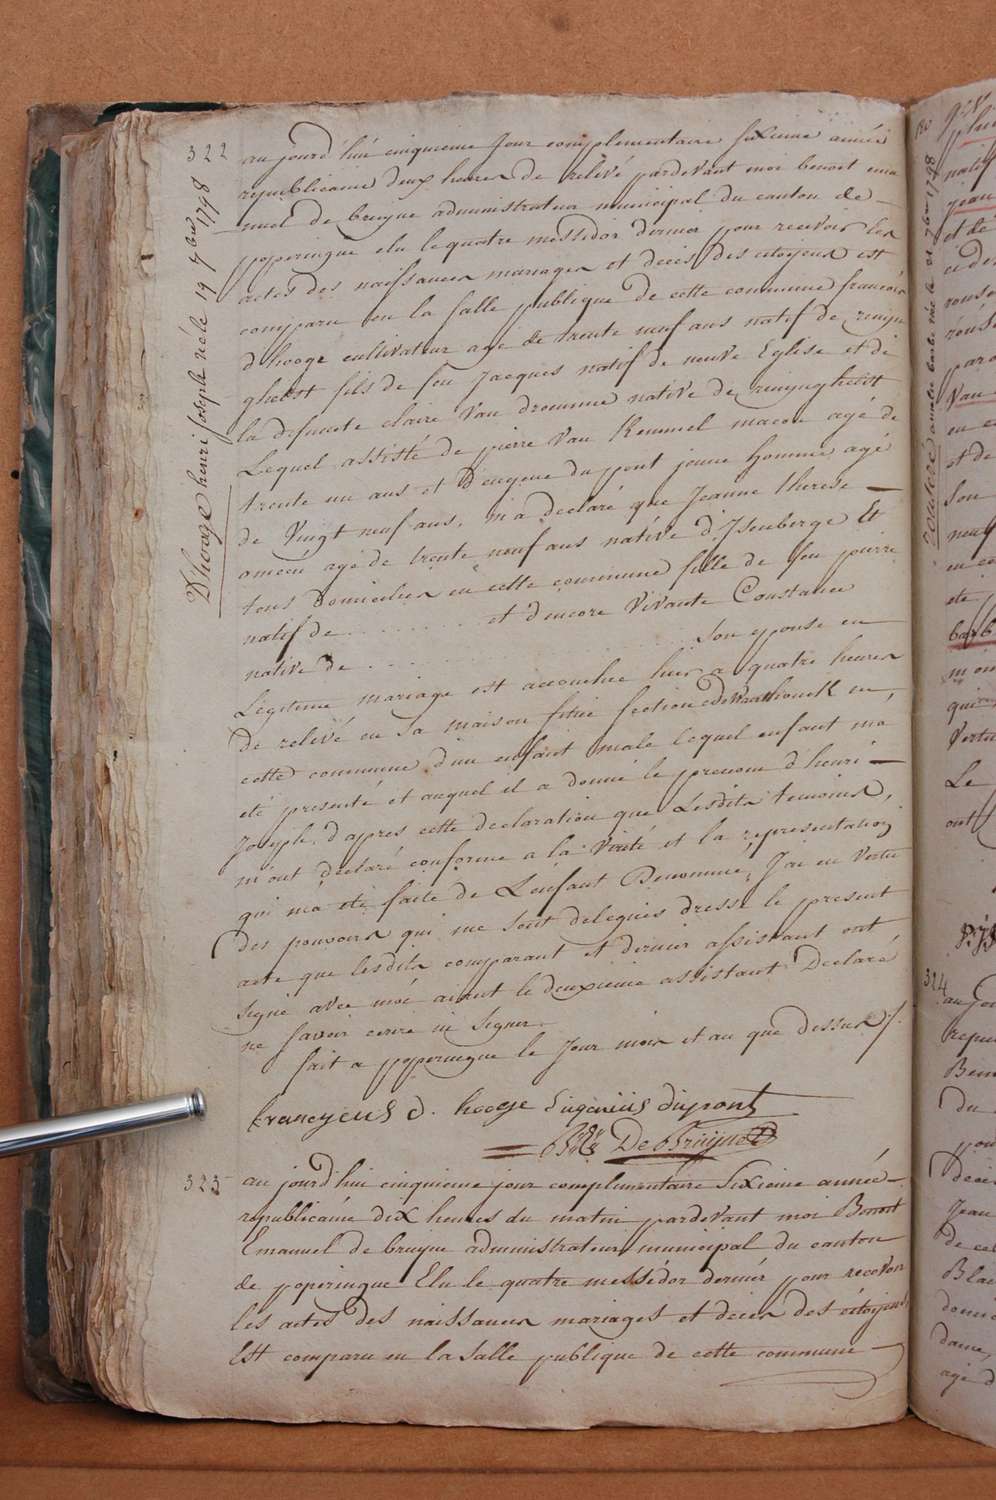 322
D'hooge henri joseph né le 19 7bre 1798
aujourd'hui cinquieme jour complementaire sixieme année
republicaine deux heures de relévé pardevant moi benoit ema
nuel de bruyne administrateur municipal du canton de
poperingue elu le quatre messidor dernier pour recevoir les
actes des naissances mariages et décès des citoyens est
comparu en la salle publique de cette commune francois
d'hooge cultivateur agé de trente neuf ans natif de rening
helst fils de feu Jacques natif de neuve Eglise et de
la defuncte claire Van dromme native de reninghelst
Lequel assisté de pierre Van Kemmel macon agé de
trente un ans et d'eugene du pont jeune homme agé
de Vingt neuf ans, m'a declaré que Jeanne therese
ameeu agé de trente neuf ans native d'Isenberge Et
tous domiciliés en cette commune fille de feu pierre
natif de . . . . . . . . et d'encore Vivante Constance
native de . . . . . . . . . . . . . . . . Son epouse en
Légitime mariage est accouchée hier a quatre heures
de relévé en sa maison situé section en
cette commune d'un enfant male lequel enfant m'a
eté presenté et auquel il a donné le prenom d'henri
Joseph, d'apres cette declaration que Lesdits temoins,
m'ont declaré conforme a la Verité et la representation
qui m'a eté faite de L'enfant Denommé, J'ai en Vertu
des pouvoirs qui me sont delegués dressé le present
acte que lesdits comparant et dernier assistant ont
signé avec moi aiant le deuxieme assistant Declaré
ne savoir ecrire ni signer.
fait a poperingue le Jour mois et an que dessus ./.
francycus d. hooge Eugeniüs düpont
DeBruyne
323
aujourd'hui cinquieme jour complimentaire Sixieme année
republicaine dix heures du matin pardevant moi Benoit
Emanuel de bruyne administrateur municipal du canton
de poperingue Elu le quatre messidor dernier pour recevoir
les actes des naissances mariages et deces des citoyens
Est comparu en la Salle publique de cette commune
324